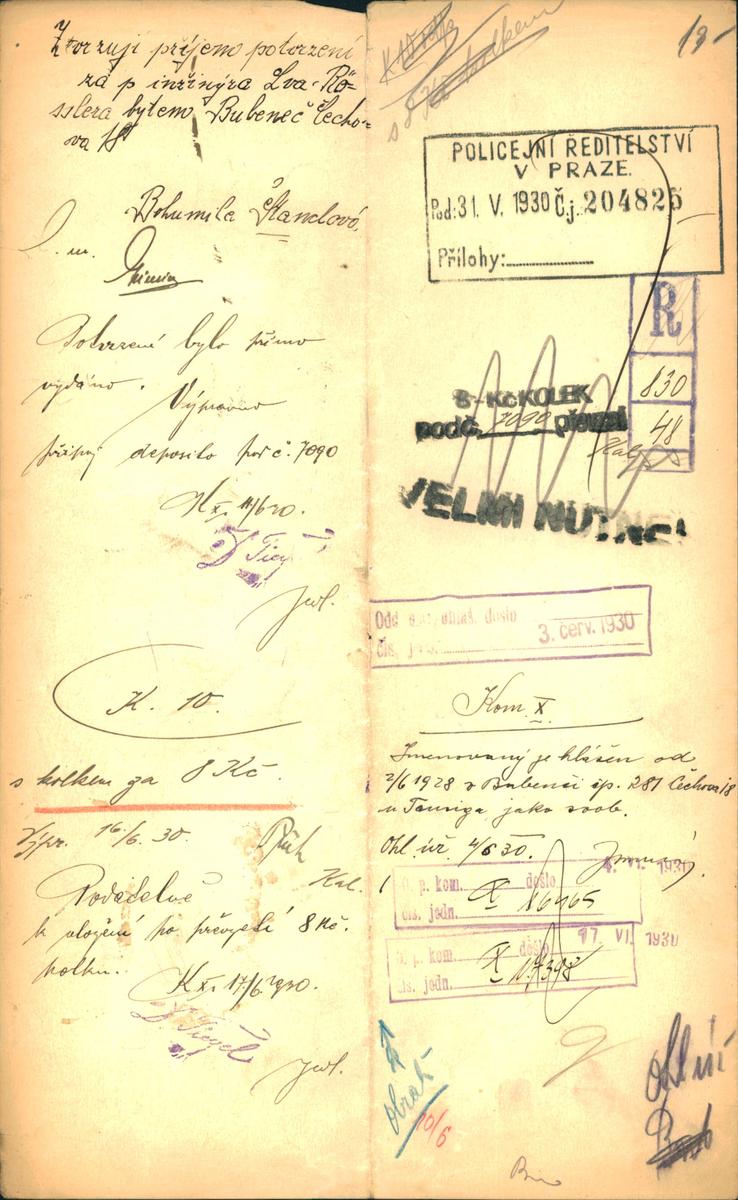 Ztvrzuji příjem potvrzení
za p inžinýra Lva Rö-
sslera bytem Bubeneč Čecho-
va 18
Bohumila Štandová
Potvrzení bylo přímo
vydáno. Výpravno
připoj deposito poř č. 7090
K X. 11/6 30.
K. 10.
s kolkem za 8 Kč.
Výpr. 16./6. 30.
Kal.
Podatelně
k uložení po převzetí 8 Kč.
kolku.
K X. 17/6 1930.
13-
POLICEJNÍ ŘEDITELSTVÍ
V PRAZE.
Pod: 31. V. 1930 Č.j. 204825
Přílohy:
R
830
48
8-Kč KOLEK
pod č. 7090 převzal
VELMI NUTNÉ!
došlo
3. červ. 1930
Kom X.
Jmenovaný je hlášen od
2/6 1928 v Bubenči čp. 281 Čechova 18
u jako svob.
Ohl. úř. 4/6 30.
4. VI. 1930
O. p. kom. X došlo
čís. jedn. 16965
17. VI. 1930
O. p. kom. X došlo
čís. jedn. 17398
Obrať
10/6